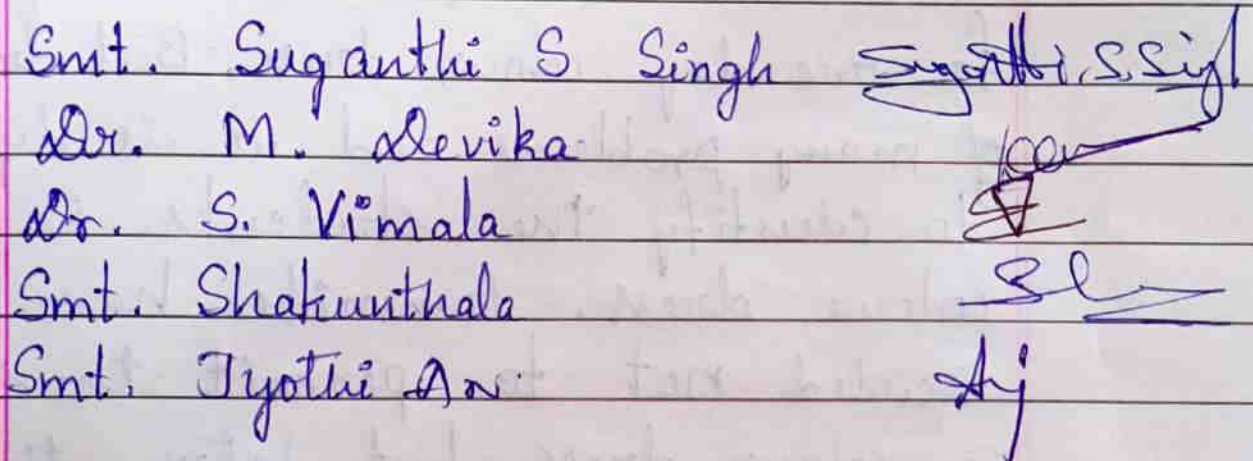 Smt. Suganthi S Singh Suganthi.S.Singh
Dr. M. Devika
Dr. S. Vimala
Smt. Shakunthala
Smt. Jyothi A N